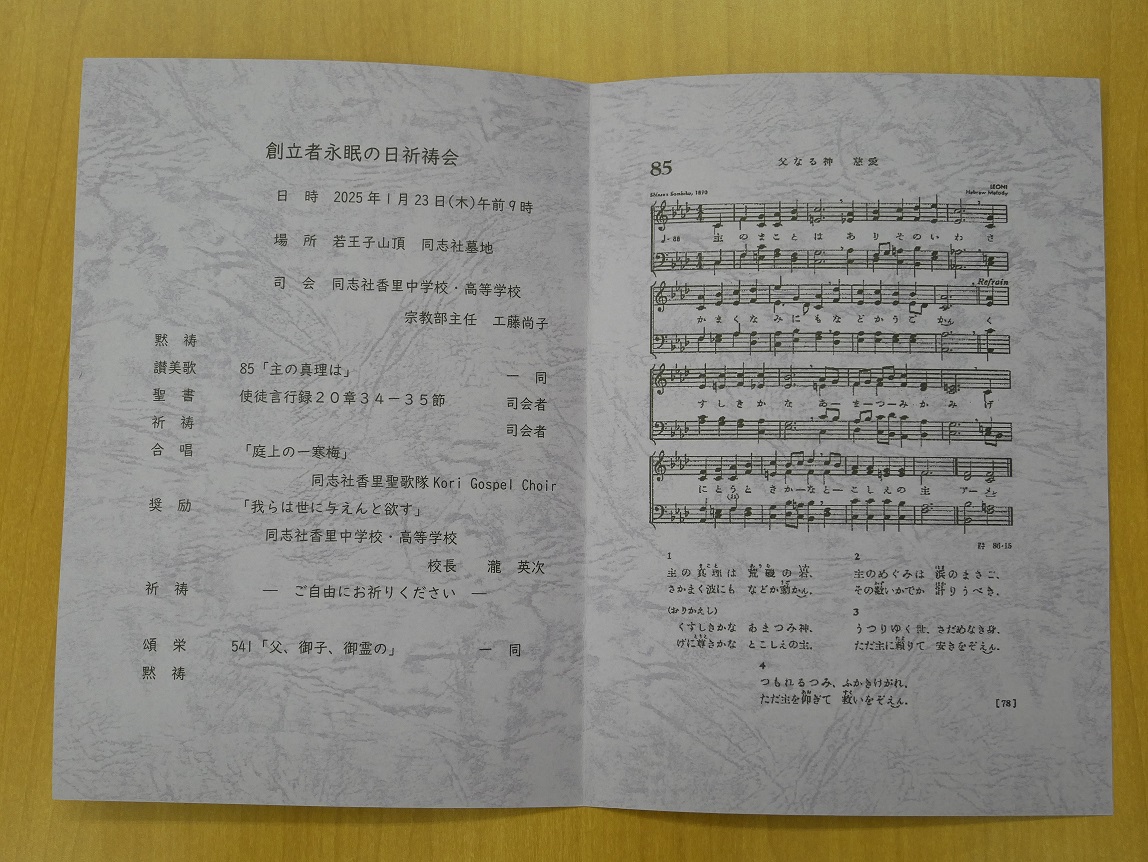 創立者永眠の日祈祷会
日 時 2025年1月23日(木)午前9時
場 所 若王子山頂 同志社墓地
司 会 同志社香里中学校・高等学校
宗教部主任 工藤尚子
黙 祷
讃美歌 85「主の真理は」 一 同
聖 書 使徒言行録20章34－35節 司会者
祈 祷 司会者
合 唱 「庭上の一寒梅」
同志社香里聖歌隊Kori Gospel Choir
奨 励 「我らは世に与えんと欲す」
同志社香里中学校・高等学校
校長 瀧 英次
祈 祷 ― ご自由にお祈りください ―
頌 栄 541「父、御子、御霊の」 一 同
黙 祷
85 父なる神 慈愛
LEONI
Hebrew Melody
♩=88 主のまことは ありそのいわさ
Refrain
かまくなみにもなどかうごかん く
すしきかな あーまーつーみかみ げ
にとうと きかーなとーこしえの 主 アーメン
詩 86・15
1
主の真理は 荒磯の岩、
さかまく波にも などか動かん。
(おりかえし)
くすしきかな あまつみ神、
げに尊きかな とこしえの主。
2
主のめぐみは 浜のまさご、
その数いかでか 計りうべき。
3
うつりゆく世、さだめなき身、
ただ主に頼りて 安きをぞえん。
4
つもれるつみ、ふかきけがれ、
ただ主を仰ぎて 救いをぞえん。
[78]